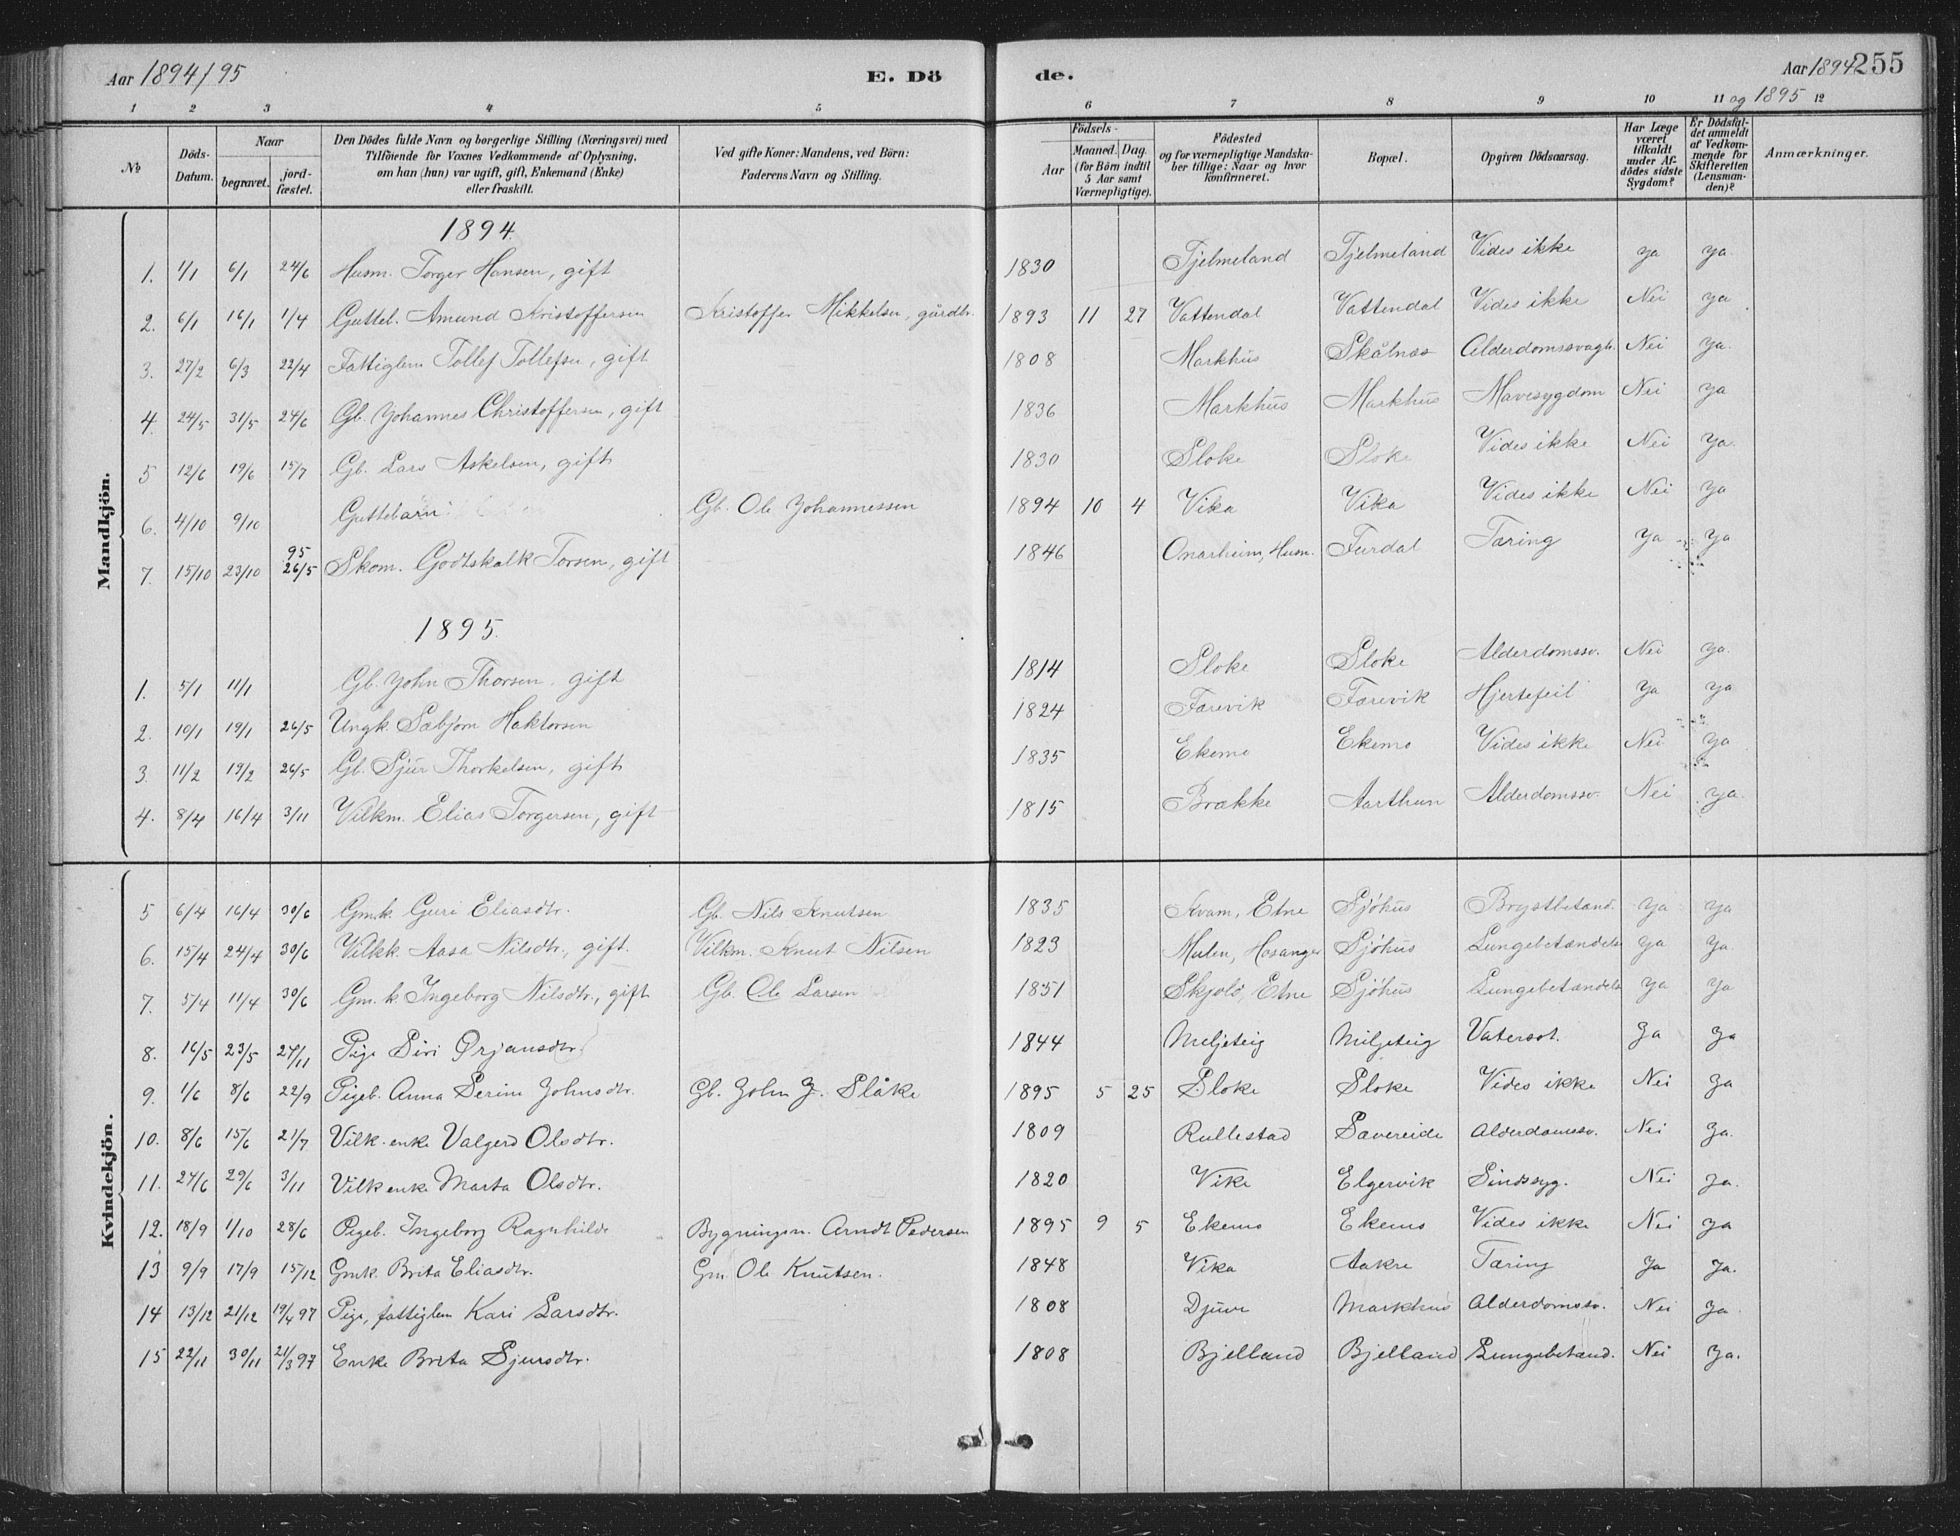 Aar 1894/95 E. Dö de. Aar 1894 255
og 1895
1 2 3 4 5 6 7 8 9 10 11 12
No
Döds-Datum.
Naar
begravet. jordfæstet.
Den Dödes fulde Navn og borgerlige Stilling (Næringsvei) med
Tilföiende for Voxnes Vedkommende af Oplysning,
om han (hun) var ugift, gift, Enkemand (Enke)
eller fraskilt.
Ved gifte Koner: Mandens, ved Börn:
Faderens Navn og Stilling.
Födsels-
Aar Maaned. Dag.
(for Börn indtil
5 Aar samt
Værnepligtige).
Födested
og for værnepligtige Mandskaber tillige: Naar og hvor
konfirmeret.
Bopæl.
Opgiven Dödsaarsag.
Har Læge
været
tilkaldt
under Afdödes sidste
Sygdom?
Er Dödsfaldet anmeldt
af Vedkommende for
Skifteretten
(Lensmanden)?
Anmærkninger.
Mandkjön.
1894.
1. 1/1 6/1 24/6 Husm. Torger Hansen, gift 1830 Tjelmeland Tjelmeland Vides ikke ya ya.
2. 6/1 16/1 1/4 Gutteb. Amund Kristoffersen Kristoffer Mikkelsen, gårdbr. 1893 11 27 Vattendal Vattendal Vides ikke Nei ya
3. 27/2 6/3 22/4 Fattiglem Tollef Tollefsen, gift 1808 Markhus Skålnæs Alderdomssvagh. Nei ya.
4. 24/5 31/5 24/6 Gb. Johannes Christoffersen, gift 1836 Markhus Markhus Mavesygdom Nei ya
5 12/6 19/6 15/7 Gb. Lars Askelsen, gift 1830 Sloke Sloke Vides ikke Nei ya.
6. 4/10 9/10 Guttebarn Gb. Ole Johannessen 1894 10 4 Vika Vika Vides ikke Nei ya
7. 15/10 23/10 95 26/5 Skom. Godtskalk Torsen, gift 1846 Onarheim, Husn. Furdal Tæring ya ya
1895.
1. 5/1 11/1 Gb. John Thorsen, gift 1814 Sloke Sloke Alderdomssv. Nei ya.
2. 10/1 19/1 26/5 Ungk. Sæbjørn Haktorsen 1824 Farevik Farevik Hjertefeil ya ya
3. 11/2 19/2 26/5 Gb. Sjur Thorkelsen, gift 1835 Ekemo Ekemo Vides ikke Nei ya
4. 8/4 16/4 3/11 Vilkm. Elias Torgersen, gift 1815 Brække Aarthun Alderdomssv. Nei ya.
Kvindekjön.
5 6/4 16/4 30/6 Gmk. Guri Eliasdtr. Gb. Nils Knutsen 1835 Kvam, Etne Sjöhus Brystbetænd. ya ya
6. 15/4 24/4 30/6 Vilkk. Aasa Nilsdtr., gift. Vilkm. Knut Nilsen 1823 Mulen, Hosanger Sjöhus Lungebetændelse ya ya.
7. 5/4 11/4 30/6 Gm.k. Ingeborg Nilsdtr., gift Gb. Ole Larsen 1851 Skjold, Etne Sjöhus Lungebetændelse ya ya
8. 16/5 23/5 24/11 Pige Siri Ørjansdtr. 1844 Meljeteig Miljeteig Vatersot. Ja Ja
9. 1/6 8/6 22/9 Pigeb. Anna Serine Johnsdtr. Gb. John J. Slåke 1895 5 25 Sloke Sloke Vides ikke Nei Ja
10. 8/6 15/6 21/7 Vilk. enke Valgerd Olsdtr. 1809 Rullestad Sævereide Alderdomssv. Nei Ja.
11. 24/6 29/6 3/11 Vilk enke Marta Olsdtr. 1820 Vike Elgervik Sindssyg. Nei Ja.
12. 18/9 1/10 28/6 Pigeb. Ingeborg Ragnhilde Bygningsm. Arndt Pedersen 1895 9 5 Ekemo Ekemo Vides ikke Nei Ja
13 9/9 17/9 15/12 Gmk. Brita Eliasdtr. Gm. Ole Knutsen. 1848 Vika Aakre Tæring Ja Ja.
14 13/12 21/12 19/4 97 Pige, fattiglem Kari Larsdtr. 1808 Djuve Markhus Alderdomssv. Nei Ja.
15 22/11 30/11 21/3 97 Enke Brita Sjursdtr. 1808 Bjelland Bjelland Lungebetænd. Nei Ja.